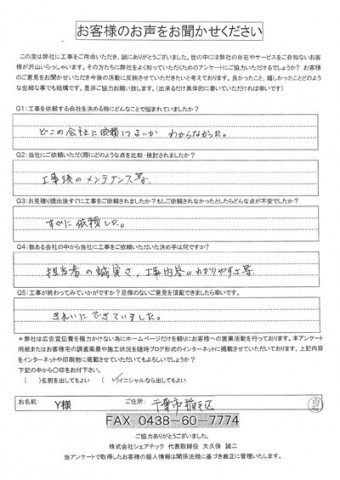 お客様のお声をお聞かせください
この度は弊社に工事をご用命いただき、誠にありがとうございます。世の中には弊社の存在やサービスをご存知ないお客様が沢山いらっしゃいます。その方たちに弊社をよく知っていくためのアンケートにご協力いただけるでしょうか？ お客様のご意見をお聞かせいただき今後の活動に反映させていただきたいと考えております。良かったこと、嬉しかったことどのような些細な事でも結構です。是非ご協力お願い致します。（出来るだけ具体的に書いていただければ幸いです）
Q1:工事を依頼する会社を決める時にどんなことで悩まれていましたか？
どこの会社に依頼してよいか わからなかった。
Q2:当社にご依頼いただく際にどのような点を比較・検討されましたか？
工事後のメンテナンス等
Q3:お見積り提出後すぐに工事をご依頼されましたか？もしご依頼されなかったとしたらどんな点が不安でしたか？
すぐに依頼した。
Q4:数ある会社の中から当社に工事をご依頼いただいた決め手は何ですか？
担当者の誠実さ、工事内容のわかりやすさ等
Q5:工事が終わってみていかがですか？忌憚のないご意見を頂戴できましたら幸いです。
きれいにできていました。
＊弊社は広告宣伝費を極力かけない為にホームページだけを頼りにお客様への営業活動を行っております。本アンケート用紙またはお客様の調査風景や施工状況を随時ブログ形式のインターネットに掲載させていただいております。上記内容をインターネットや印刷物に掲載させていただいてもよろしいでしょうか？
下記の中から〇印をお付下さい。
（　）名前を出してもよい （✓）イニシャルなら出してもよい
お名前: Y様 ご住所: 千葉市稲毛区
FAX 0438-60-7774
ご協力ありがとうございました。
株式会社シェアテック 代表取締役 大久保 誠二
当アンケートで取得したお客様の個人情報は関係法規に基づき厳正に管理いたします。